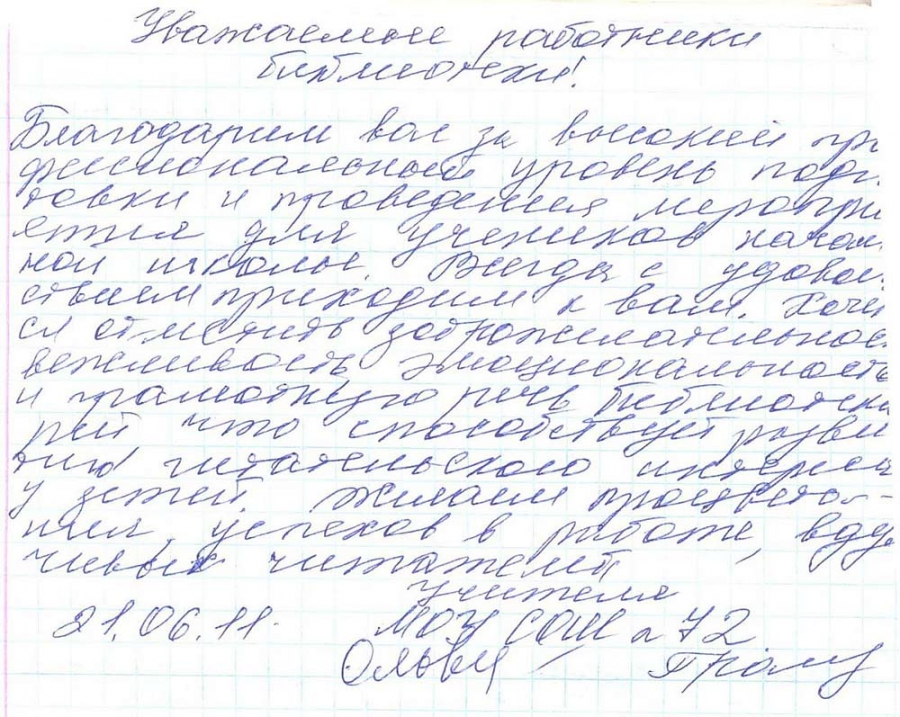 Уважаемые работники
библиотеки!
Благодарим вас за высокий про
фессиональный уровень подго
товки и проведения меропри
ятия для учеников началь
ной школы. Всегда с удоволь
ствием приходим к вам. Хочет
ся отметить доброжелательнос
вежливость эмоциональность
и грамотную речь библиотека
рей что способствует разви
тию читательского интереса
у детей. Желаем процвета-
ния, успехов в работе, вдум
чивых читателей
учителя
21.06.11. МОУ СОШ № 72